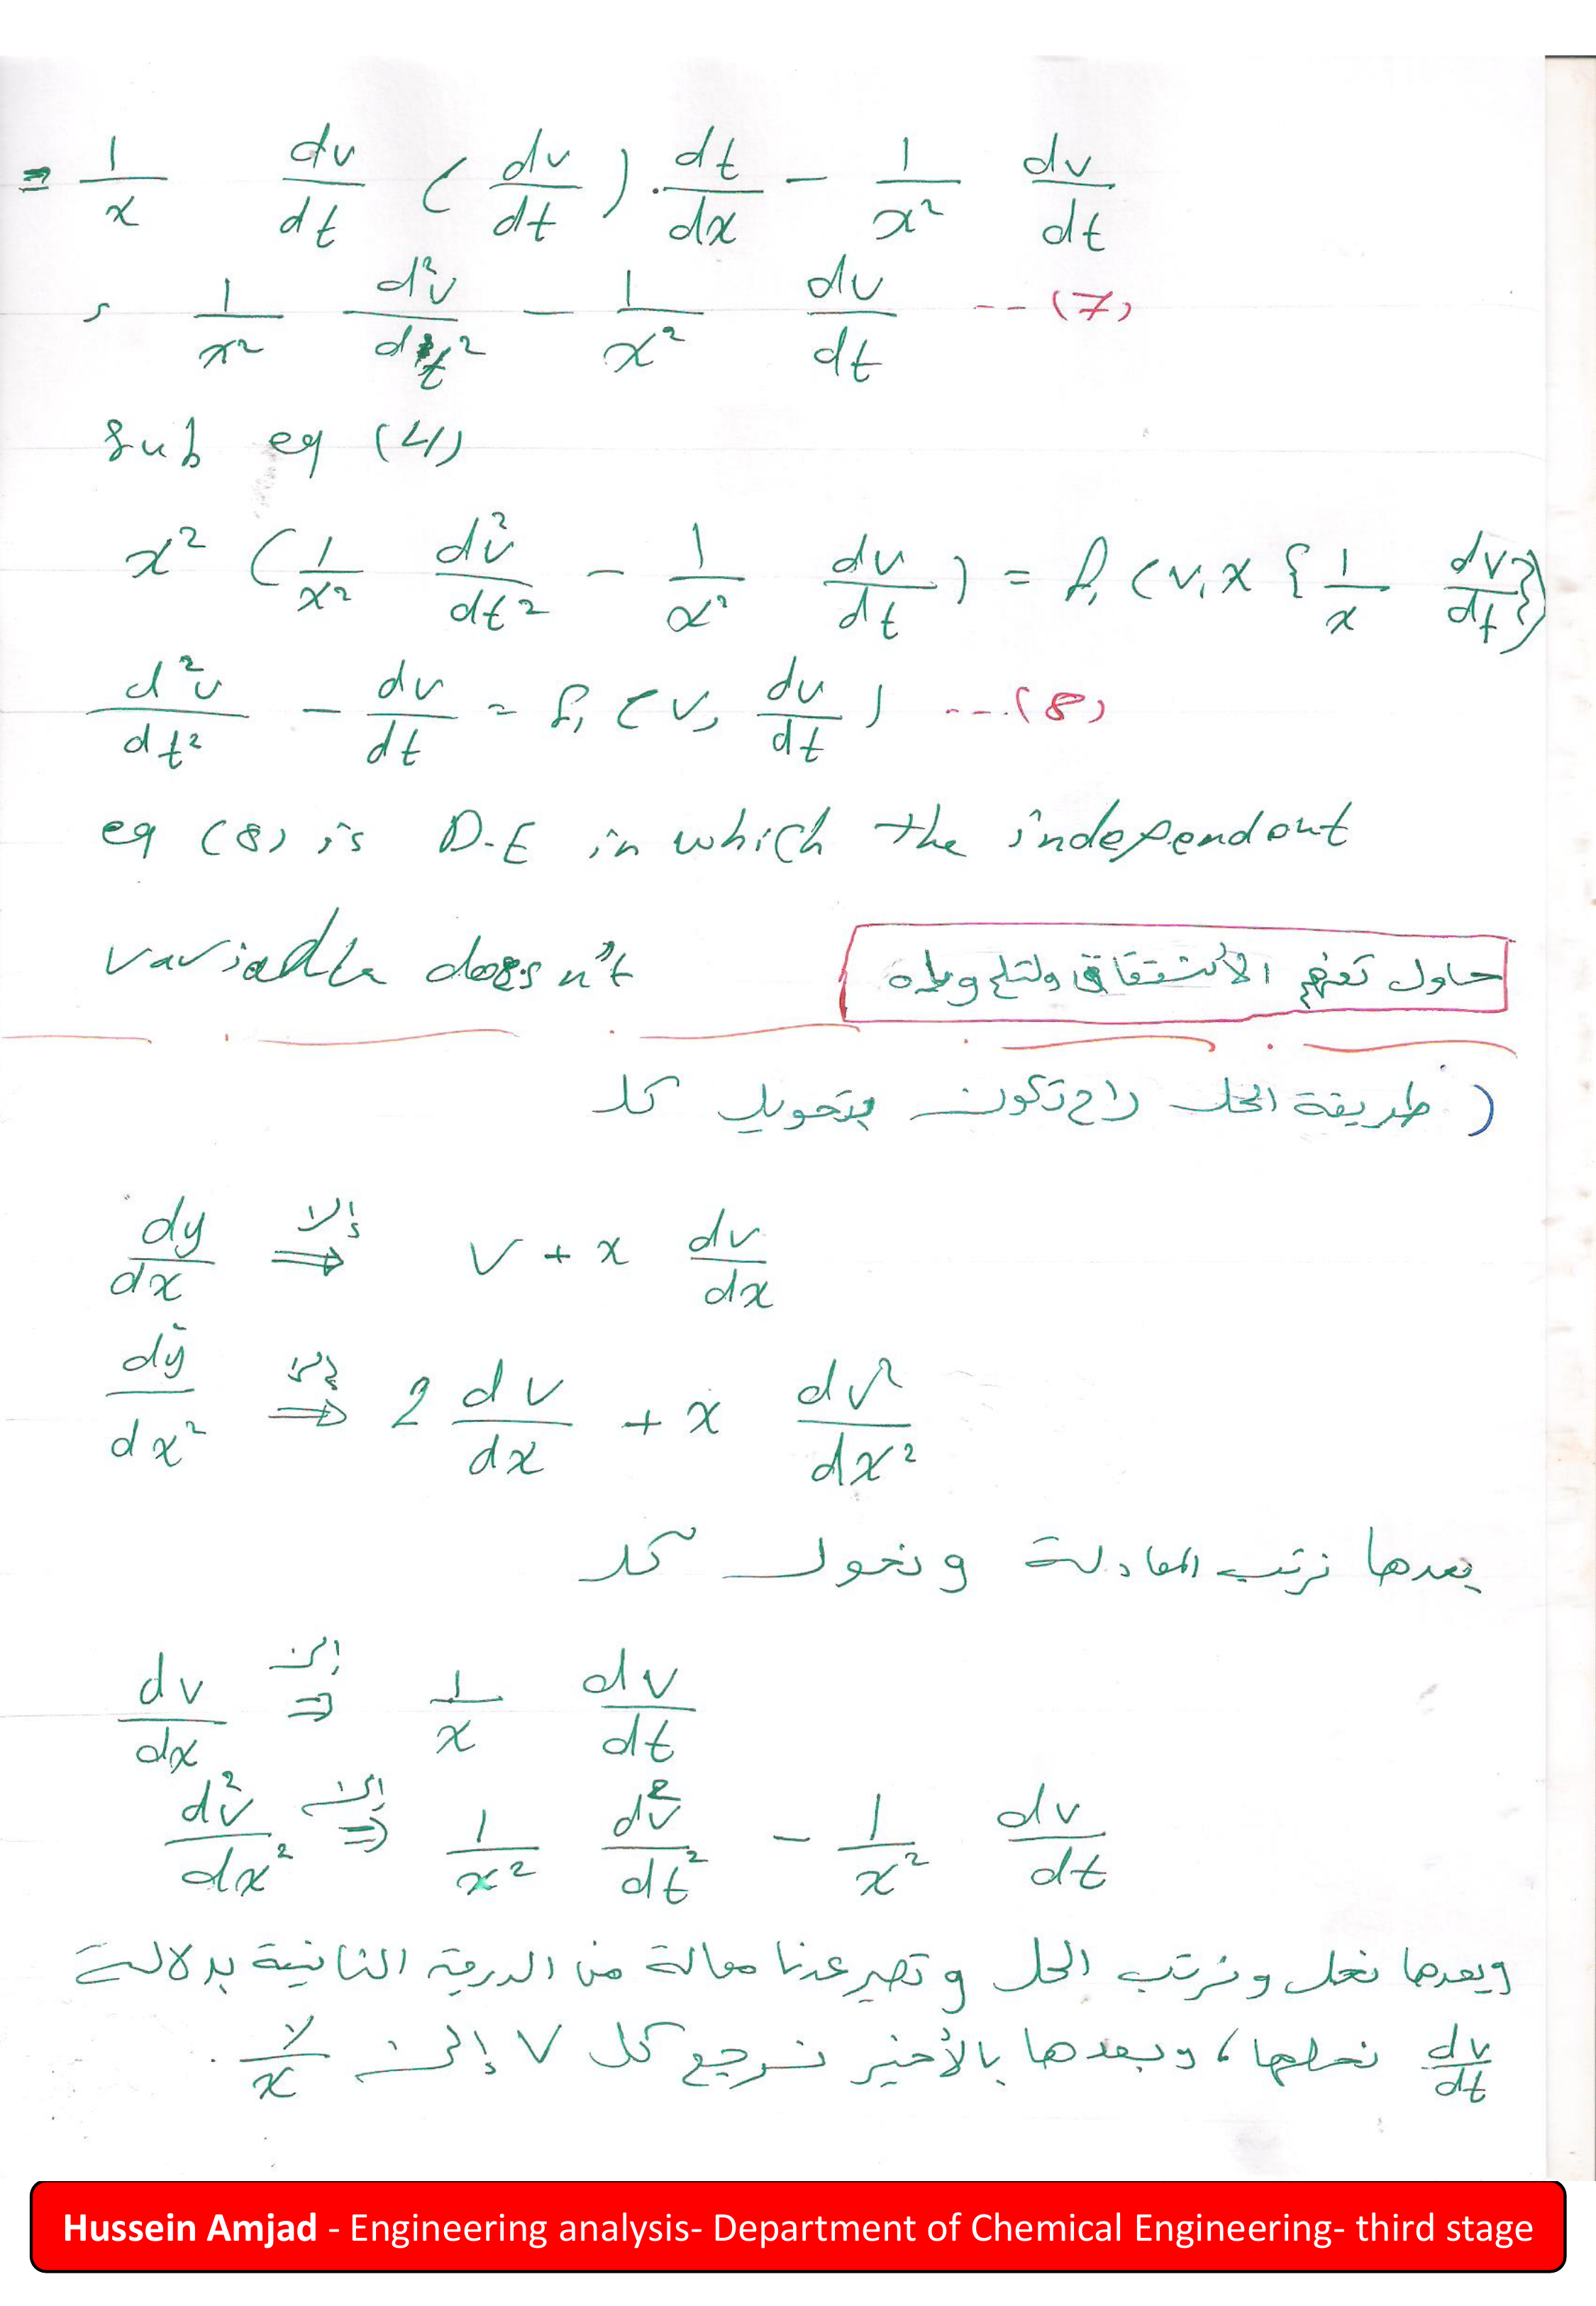 = 1/x dv/dt (dv/dt) . dt/dx - 1/x² dv/dt
1/x² d²v/dt² - 1/x² dv/dt --(7)
sub eq (4)
x² (1/x² d²v/dt² - 1/x² dv/dt) = f₁ (v, x {1/x dv/dt})
d²v/dt² - dv/dt = f₁ (v, dv/dt) ---(8)
eq (8) is D.E in which the independent
variable doesn't
حاول تفهم الأشتقاق
( طريقة الحل راح تكون بتحويل كل
dy/dx إلى ⇒ v + x dv/dx
d²y/dx² إلى ⇒ 2 dv/dx + x dv²/dx²
بعدها نرتب المعادلة ونحول كل
dv/dx إلى ⇒ 1/x dv/dt
d²v/dx² إلى ⇒ 1/x² d²v/dt² - 1/x² dv/dt
وبعدها نحل ونرتب الحل وتصير عدنا معالة من الدرجة الثانية بدلالة
dv/dt نحلها، وبعدها بالأخير نرجع كل v إلى y/x .
Hussein Amjad - Engineering analysis- Department of Chemical Engineering- third stage